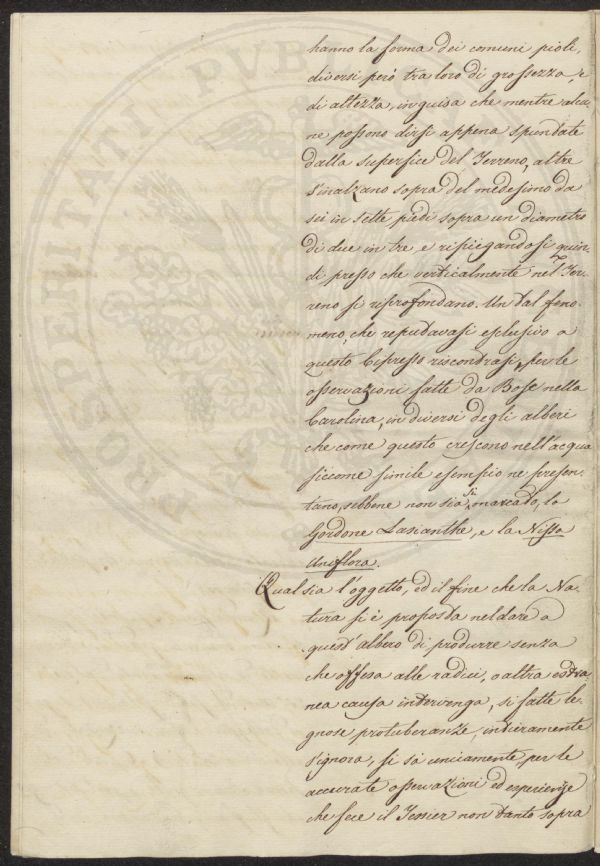 hanno la forma dei comuni pioli,
diversi però tra loro di grossezza, e
di altezza, in guisa che mentre alcu¬
ne possono dirsi appena spuntate
dalla superfice del Terreno, altre
s'inalzano sopra del medesimo da
sei in sette piedi sopra un diametro
di due in tre, e ripiegandosi quin¬
di presso che verticalmente nel Ter¬
reno si riprofondano. Un tal feno¬
meno, che reputavasi esclusivo a
questo Cipresso riscontrasi, per le
osservazioni fatte da Bosc nella
Carolina, in diversi degli alberi
che come questo crescono nell'acqua
siccome simile esempio ne presen¬
tano, sebbene non sia sì marcato, la
Gordone Lasianthe, e la Nissa
Uniflora.
Qual sia l'oggetto, ed il fine che la Na¬
tura si è proposta nel dare a
quest'albero di produrre senza
che offesa alle radici, o altra estra¬
nea causa intervenga, si fatte le¬
gnose protuberanze, intieramente
s'ignora, si sà unicamente per le
accurate osservazioni ed esperienze
che fece il Tessier non tanto sopra
PROSPERITATI PVBL